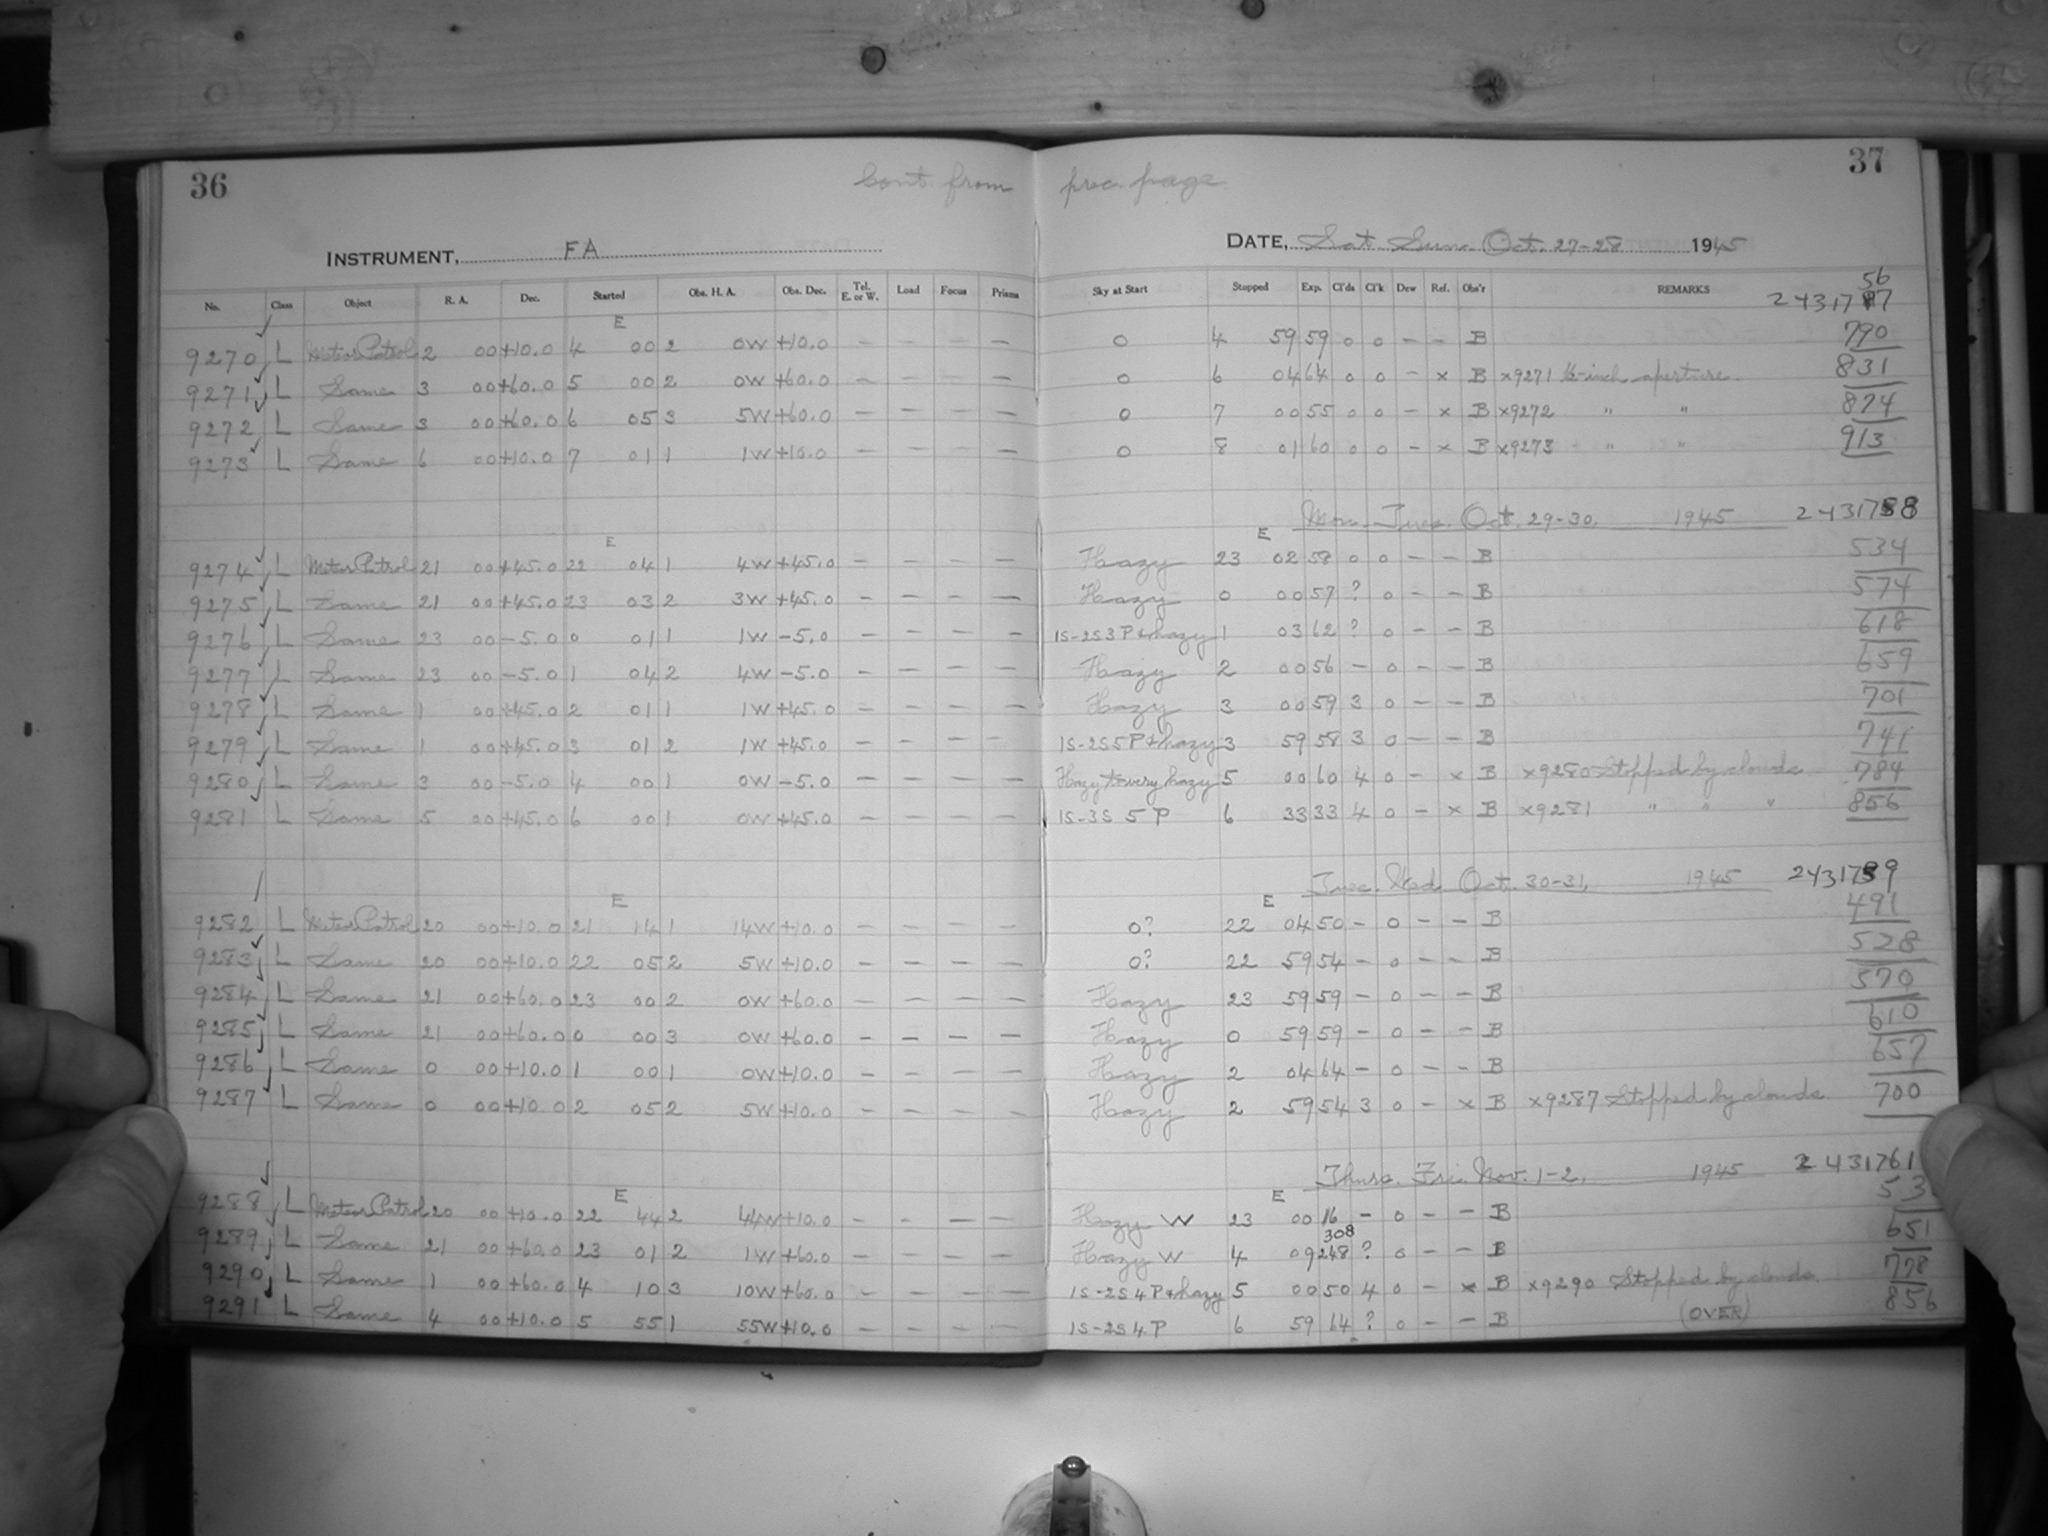 36
37
Cont. from prec. page.
INSTRUMENT, FA
DATE, Sat. Sun. Oct. 27-28 1945
No. Class Object R. A. Dec. Started Obs. H. A. Obs. Dec. Tel. E. or W. Load Focus Prisms Sky at Start Stopped Exp. Cl'ds Cl'k Dew Ref. Obs'r REMARKS
56
E
9270 L Meteor Patrol 2 00 +10.0 4 00 2 0W +10.0 — — — — 0 4 59 59 0 0 — — B 790
9271 L Same 3 00 +60.0 5 00 2 0W +60.0 — — — — 0 6 04 64 0 0 — x B x9271 ½-inch aperture. 831
9272 L Same 3 00 +60.0 6 05 3 5W +60.0 — — — — 0 7 00 55 0 0 — x B x9272 " " 874
9273 L Same 6 00 +10.0 7 01 1 1W +10.0 — — — — 0 8 01 60 0 0 — x B x9273 " " 913
Mon. Tues. Oct. 29-30. 1945 2431758
E E
9274 L Meteor Patrol 21 00 +45.0 22 04 1 4W +45.0 — — — — Hazy 23 02 58 0 0 — — B 534
9275 L Same 21 00 +45.0 23 03 2 3W +45.0 — — — — Hazy 0 00 57 ? 0 — — B 574
9276 L Same 23 00 -5.0 0 01 1 1W -5.0 — — — — 1S-2S 3 P + hazy 1 03 62 ? 0 — — B 618
9277 L Same 23 00 -5.0 1 04 2 4W -5.0 — — — — Hazy 2 00 56 — 0 — — B 659
9278 L Same 1 00 +45.0 2 01 1 1W +45.0 — — — — Hazy 3 00 59 3 0 — — B 701
9279 L Same 1 00 +45.0 3 01 2 1W +45.0 — — — — 1S-2S 5 P + hazy 3 59 58 3 0 — — B 741
9280 L Same 3 00 -5.0 4 00 1 0W -5.0 — — — — Hazy to very hazy 5 00 60 4 0 — x B x9280 Stopped by clouds. 784
9281 L Same 5 00 +45.0 6 00 1 0W +45.0 — — — — 1S-3S 5 P 6 33 33 4 0 — x B x9281 " " " 856
Tues. Wed. Oct. 30-31, 1945 2431759
E E
9282 L Meteor Patrol 20 00 +10.0 21 14 1 14W +10.0 — — — — 0? 22 04 50 — 0 — — B 491
9283 L Same 20 00 +10.0 22 05 2 5W +10.0 — — — — 0? 22 59 54 — 0 — — B 528
9284 L Same 21 00 +60.0 23 00 2 0W +60.0 — — — — Hazy 23 59 59 — 0 — — B 570
9285 L Same 21 00 +60.0 0 00 3 0W +60.0 — — — — Hazy 0 59 59 — 0 — — B 610
9286 L Same 0 00 +10.0 1 00 1 0W +10.0 — — — — Hazy 2 04 64 — 0 — — B 657
9287 L Same 0 00 +10.0 2 05 2 5W +10.0 — — — — Hazy 2 59 54 3 0 — x B x9287 Stopped by clouds. 700
Thurs. Fri. Nov. 1-2. 1945 2431761
E E
9288 L Meteor Patrol 20 00 +10.0 22 44 2 44W +10.0 — — — — Hazy W 23 00 16 — 0 — — B
308
9289 L Same 21 00 +60.0 23 01 2 1W +60.0 — — — — Hazy W 4 09 248 ? 0 — — B 651
9290 L Same 1 00 +60.0 4 10 3 10W +60.0 — — — — 1S-2S 4 P + hazy 5 00 50 4 0 — x B x9290 Stopped by clouds. 778
9291 L Same 4 00 +10.0 5 55 1 55W +10.0 — — — — 1S-2S 4 P 6 59 64 ? 0 — — B (OVER) 856